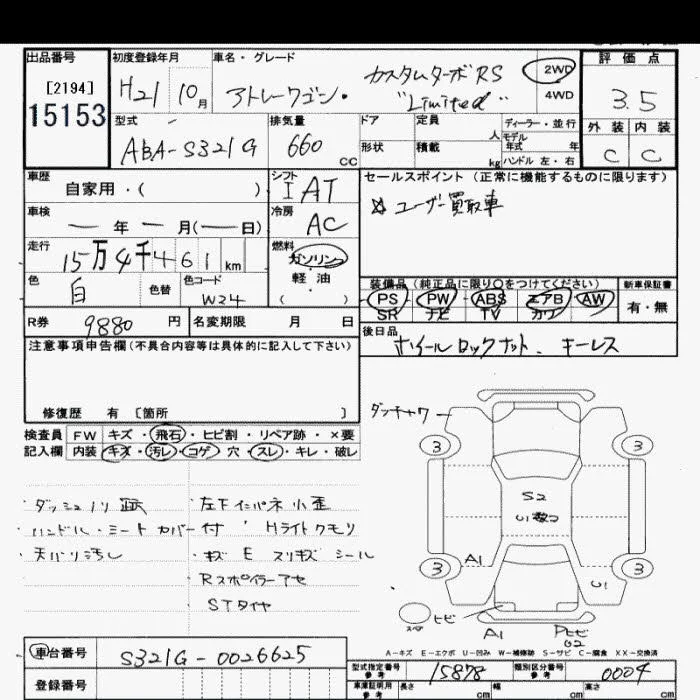 出品番号
[2194]
15153
初度登録年月
H21 10月
車名・グレード
アトレーワゴン・
カスタムターボRS
"Limited"
2WD
4WD
評価点
3.5
外装 内装
C C
型式
ABA-S321G
排気量
660 CC
ドア 定員 人
形状 積載 kg
ディーラー・並行
モデル年式 年
ハンドル 左・右
車歴
自家用・( )
シフト
I AT
セールスポイント (正常に機能するものに限ります)
☆ユーザー買取車
車検
年 月(ー日)
冷房
AC
走行
15万4千461 km
燃料
ガソリン
軽・油
( )
色
白
色替
色コード
W24
装備品(純正品に限り○をつけてください)
PS PW ABS エアB AW
SR ナビ TV カワ
新車保証書
有・無
R券 9880 円
名変期限 月 日
後日品
ホイールロックナット、キーレス
注意事項申告欄(不具合内容等は具体的に記入して下さい)
修復歴 有 [箇所 ]
検査員
記入欄
FW キズ・飛石・ヒビ割・リペア跡・×要
内装 キズ・汚レ・コゲ 穴・スレ・キレ・破レ
・ダッシュノリ
・ハンドル・シートカバー付
・天バリ汚し
・左下インパネ小歪
・Hライトクモリ
・キズ E スリキズ シール
Rスポイラーアセ
STタイヤ
ダッチャワ
3 3
S2
U1数コ
3 3
A1
U1
スペア
ヒビ
A1
Pヒビ
G2
A-キズ E-エクボ U-凹み W-補修跡 S-サビ C-腐食 XX-交換済
車台番号
S321G-0026625
登録番号
型式指定番号
参考
15878
類別区分番号
参考
0004
車庫証明用
参考
長さ cm
幅 cm
高さ cm